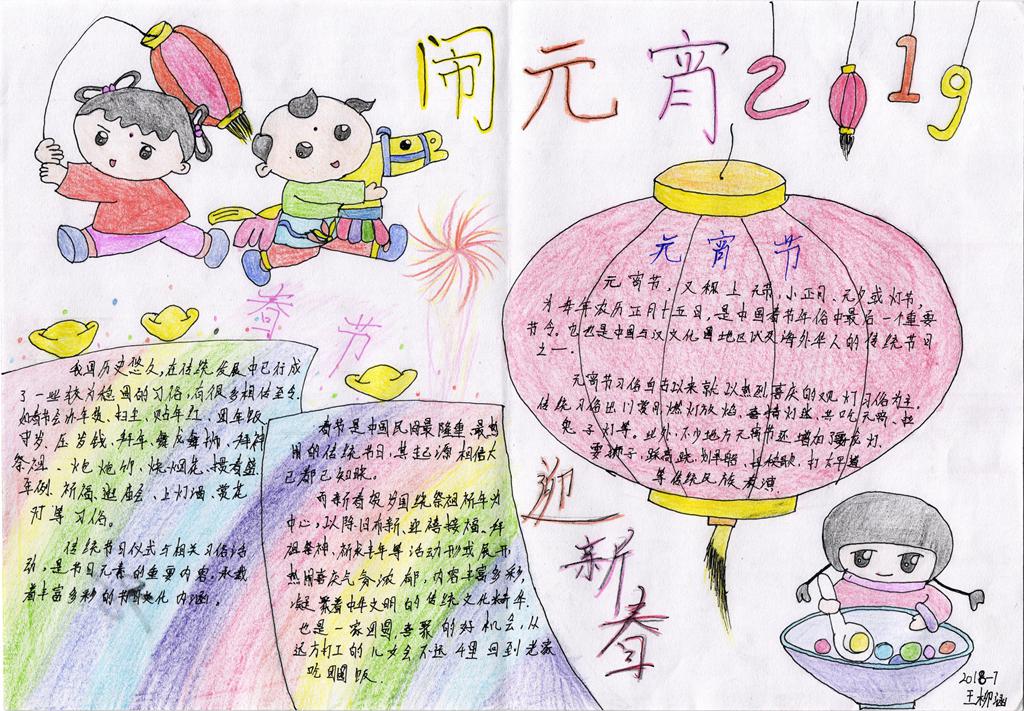 闹元宵2019
元宵节
元宵节，又称上元节，小正月、元夕或灯节，
为每年农历正月十五日，是中国春节年俗中最后一个重要
节令。也是中国与汉文化圈地区以及海外华人的传统节日
之一.
元宵节习俗自古以来就以热烈喜庆的观灯习俗为主.
传统习俗出门赏月燃灯放焰、喜猜灯谜、共吃元宵、拉
兔子灯等。此外，不少地方元宵节还增加了耍龙灯、
耍狮子、踩高跷、划旱船、扭秧歌、打太平鼓
等传统民族表演
春节
我国历史悠久，在传统发展中已形成
了一些较为稳固的习俗，有很多相传至今，
如春节会办年货、扫尘、贴年红、团年饭、
守岁、压岁钱、拜年、舞龙舞狮、拜神
祭祖、炮炮竹、烧烟花、掼春盛、
年例、祈福、逛庙会、上灯酒、赏花
灯等习俗。
传统节日仪式与相关习俗活
动，是节日元素的重要内容，承载
着丰富多彩的节日文化内涵。
春节是中国民间最隆重、最
闹的传统节日，其起源相信大
已都已知晓。
而新春贺岁围绕祭祖祈年为
中心，以除旧布新、迎禧接福、拜
祖祭神、祈求丰年等活动形式展开，
热闹喜庆气氛浓郁，内容丰富多彩，
凝聚着中华文明的传统文化精华.
也是一家团圆、喜聚的好机会，从
远方打工的儿女会不远千里回到老家
吃团圆饭.
迎新春
2018-7
王柳涵